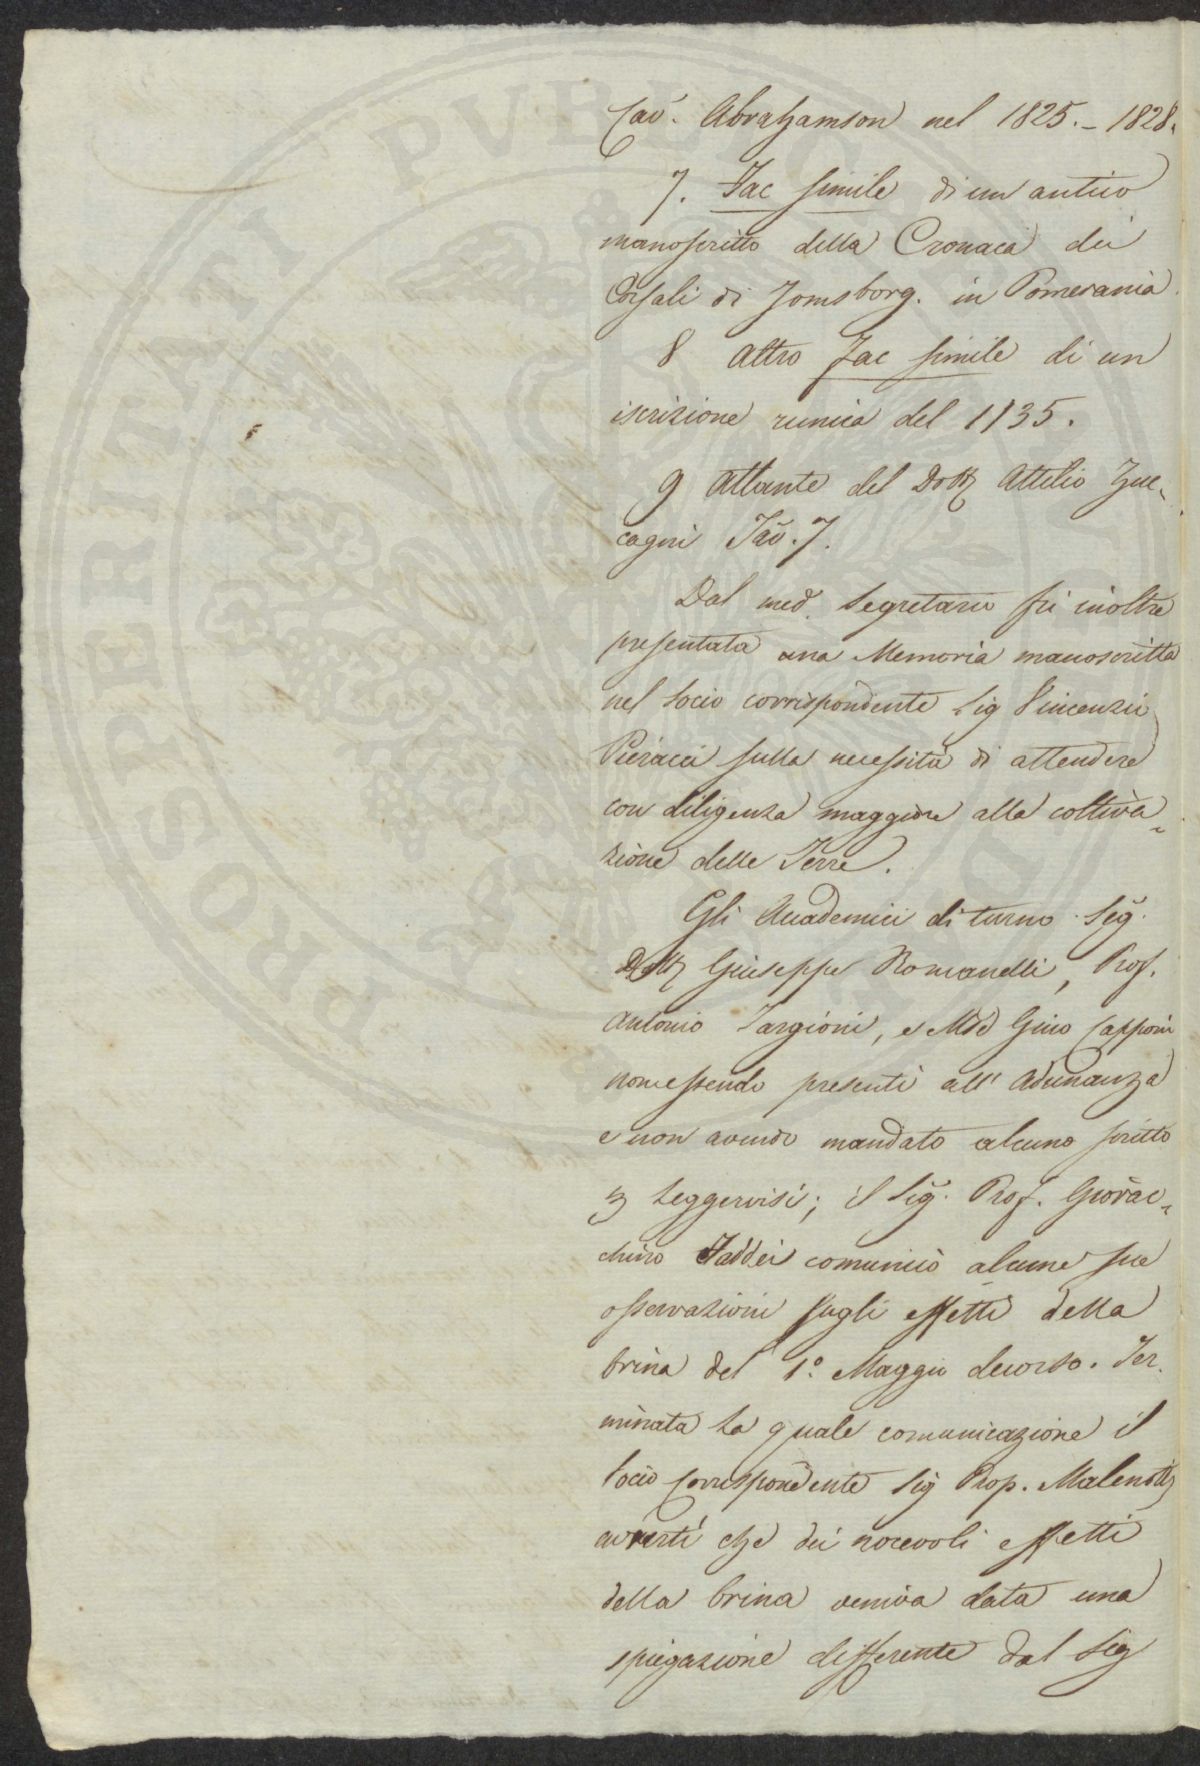 Cav. Abrahamson nel 1825. - 1828.
7. Fac simile di un antico
manoscritto della Cronaca dei
Corsali di Jomsborg. in Pomerania
8 Altro fac simile di un
iscrizione runica del 1135.
9 Atlante del Dott Attilio Zuc-
cagni Tav. 7.
Dal med. Segretario fu inoltre
presentata una Memoria manoscritta
nel Socio corrispondente Sig Vincenzio
Pieracci sulla necessità di attendere
con diligenza maggiore alla coltiva-
zione delle Terre.
Gli Accademici di turno Sigg.
Dott Giuseppe Romanelli, Prof.
Antonio Targioni, e Gino Capponi
non essendo presenti all' Adunanza
e non avendo mandato alcuno scritto
leggervisi; il Sig. Prof. Giovac-
chino Taddei comunicò alcune sue
osservazioni sugli effetti della
brina del 1.º Maggio decorso. Ter-
minata la quale comunicazione il
Socio Corrispondente Sig Prop. Malenotti
avvertì che dei nocevoli effetti
della brina veniva data una
spiegazione differente dal Sig
PROSPERITATI PVBLICAE